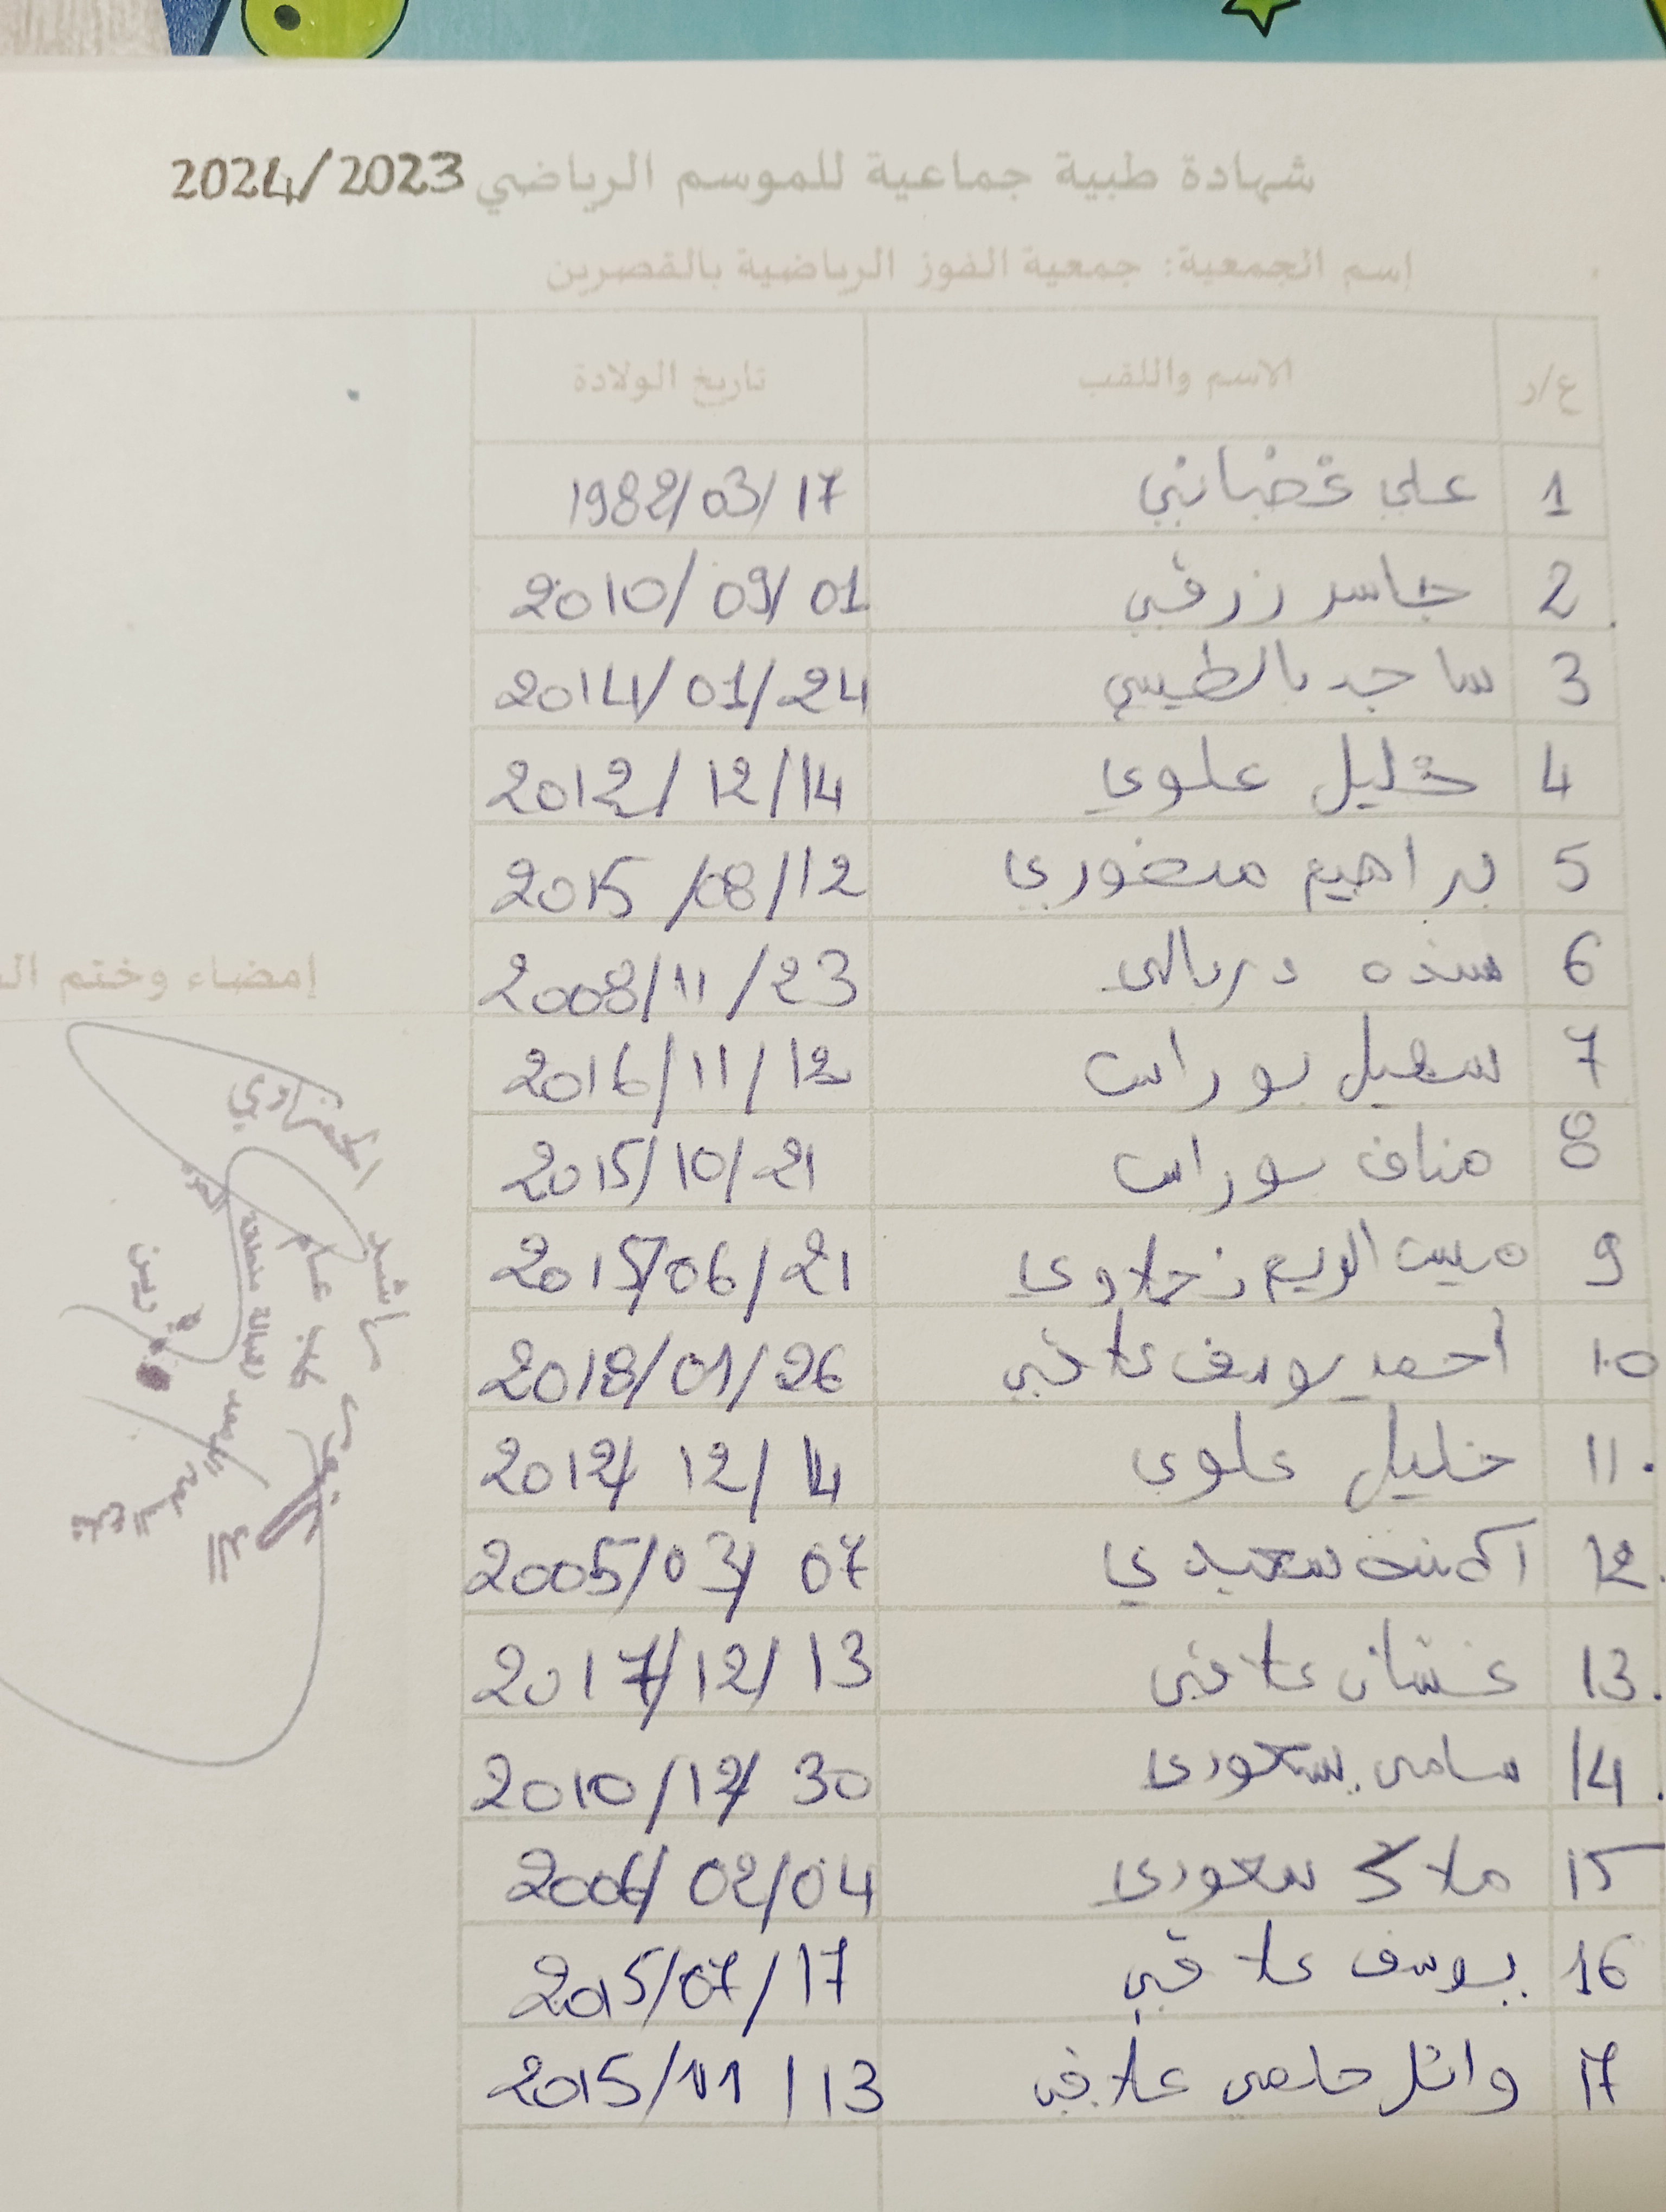 شهادة طبية جماعية للموسم الرياضي 2024/2023
إسم الجمعية: جمعية الفوز الرياضية بالقصرين
ع/ر الاسم واللقب تاريخ الولادة
1 علي غضباني 1982/03/17
2 جاسر زرقي 2010/09/01
3 ساجد بالطيبي 2014/01/24
4 خليل علوي 2012/12/14
5 براهيم منصوري 2015/08/12
6 دربالي 2008/11/23
إمضاء وختم
7 سهيل بوراس 2016/11/12
8 مناف بوراس 2015/10/21
9 ميست الريم 2015/06/21
10 أحمد يوسف علاقي 2018/01/26
11 خليل علوي 2012/12/14
12 آمنة سعيدي 2005/03/07
13 غسان علاقي 2017/12/13
14 سامي 2010/12/30
15 ملاك سعودي 2006/02/04
16 يوسف علاقي 2015/07/17
17 وائل حلمي علاقي 2015/11/13